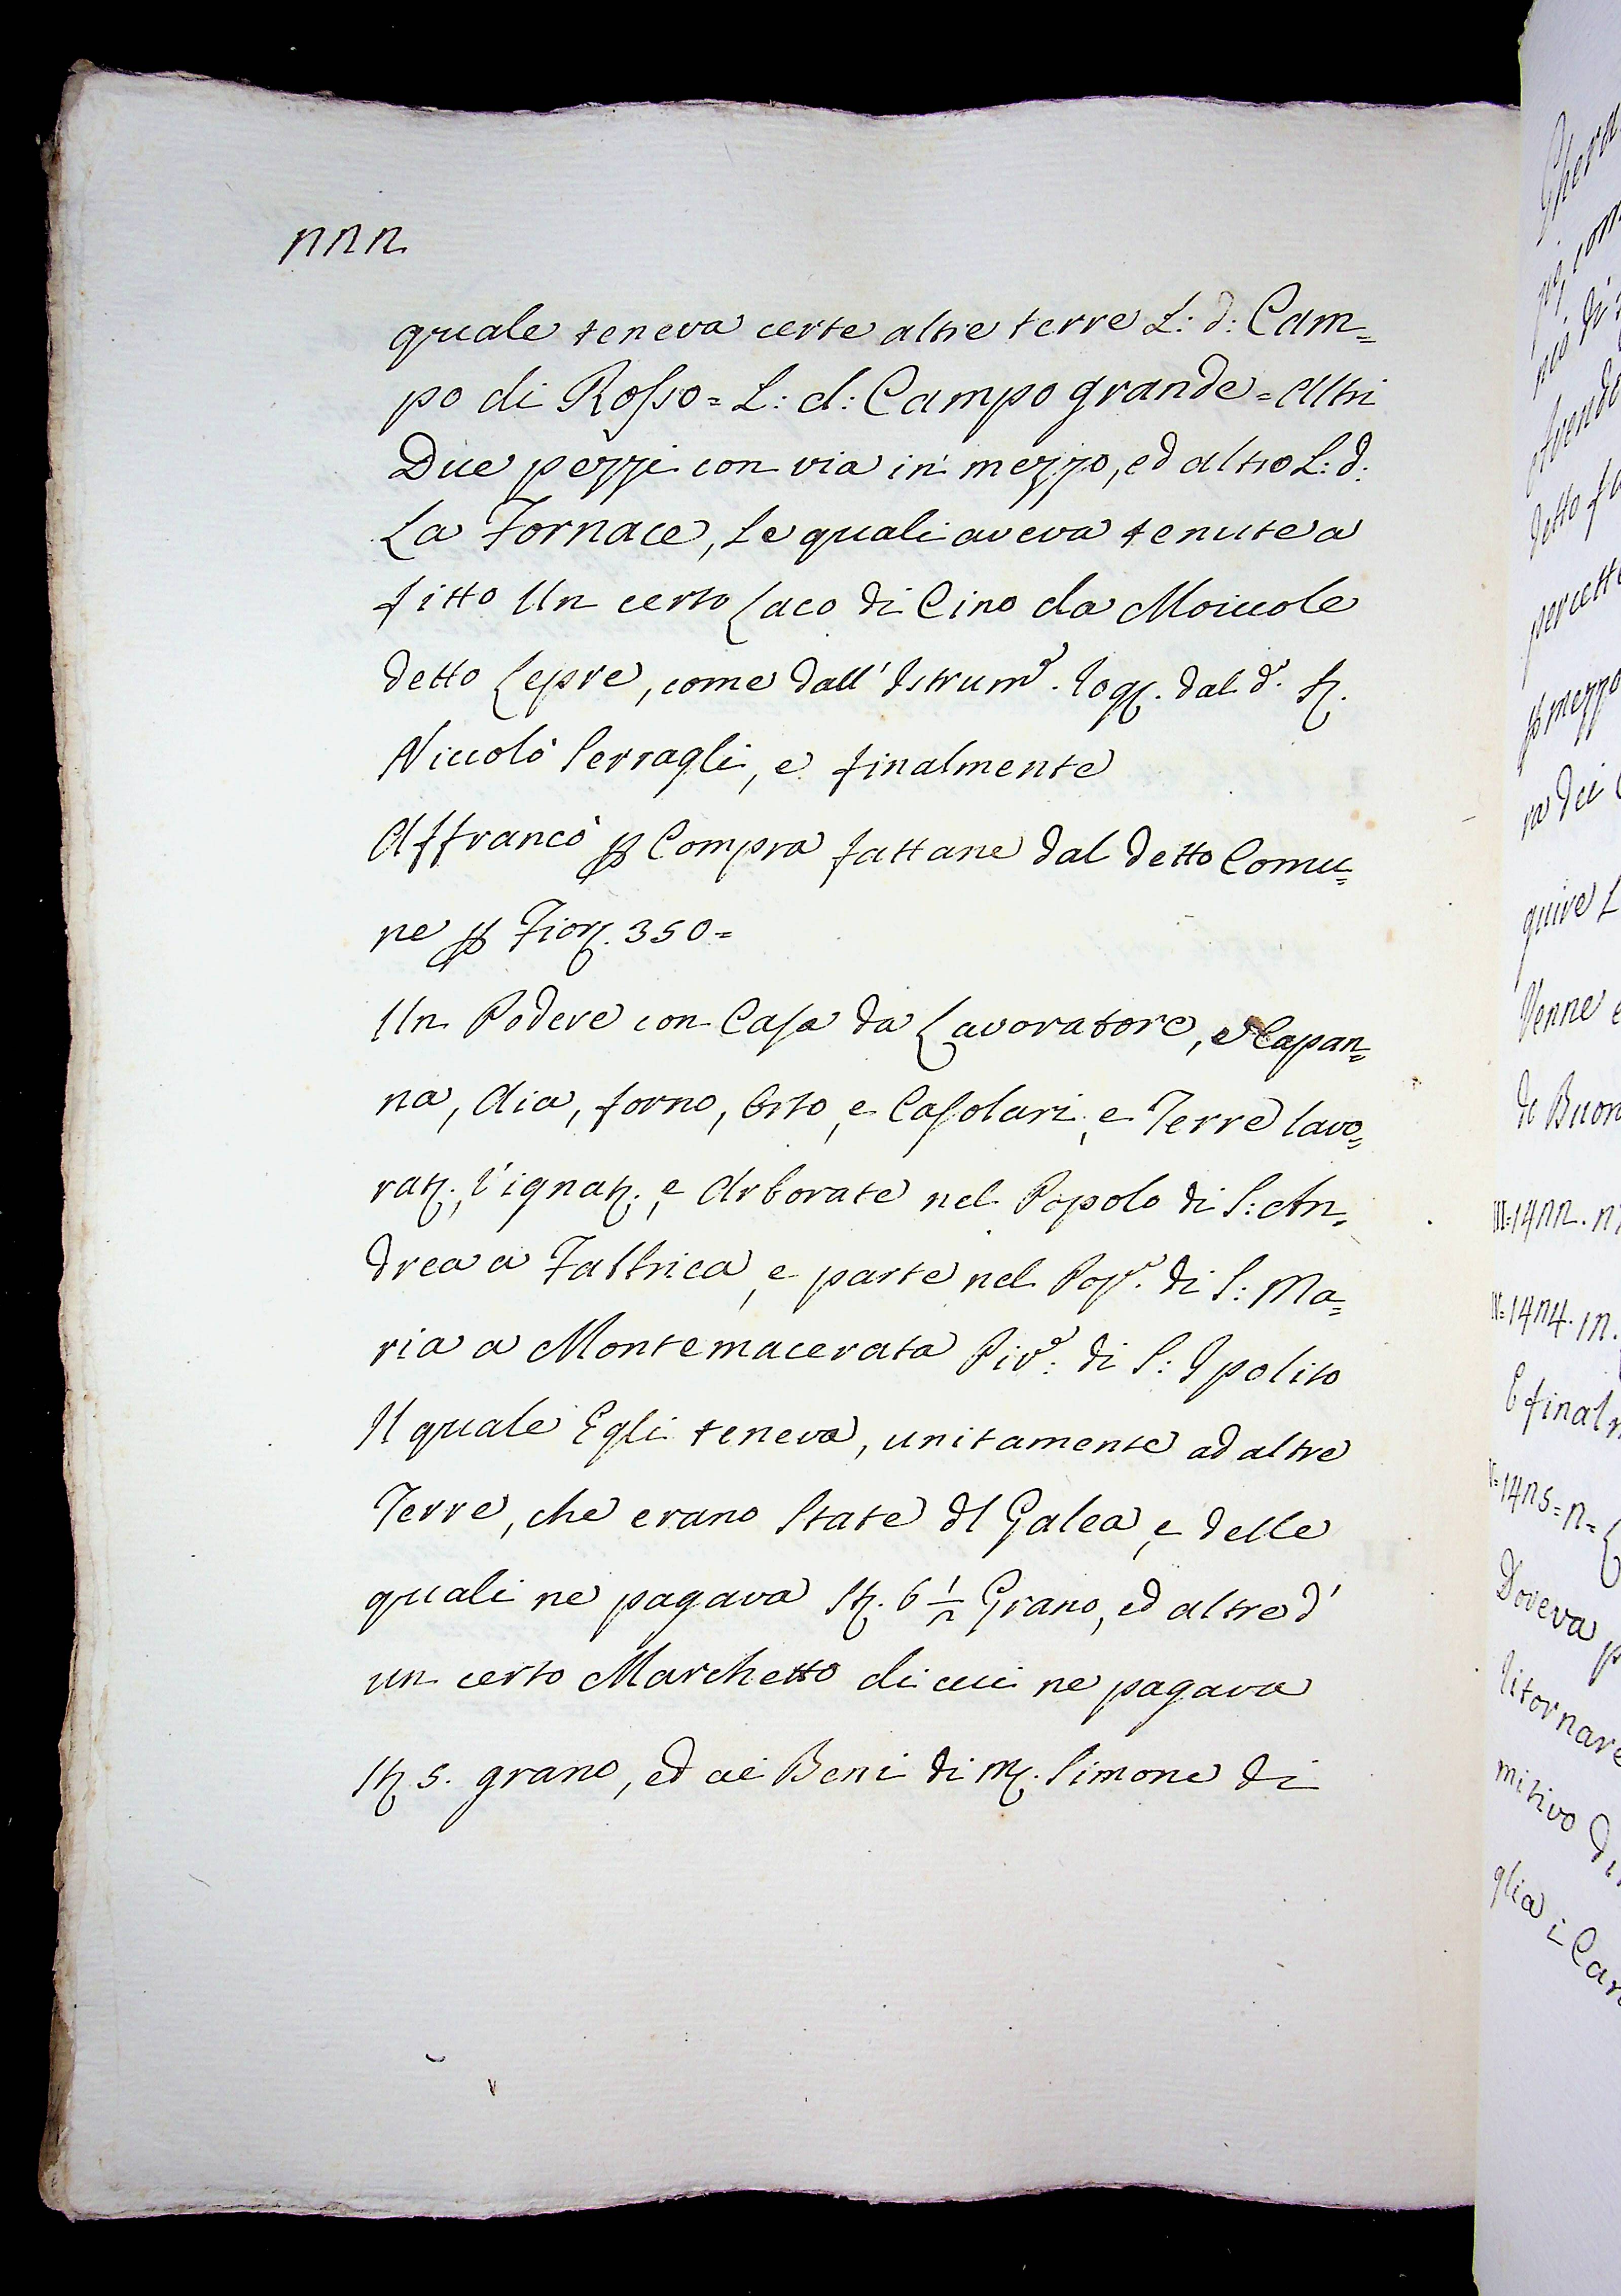 222
quale teneva certe altre terre L: d: Cam=
po di Rosso = L: d: Campo grande = Altri
Due pezzi con via in mezzo, ed altro L: d:
La Fornace, Le quali aveva tenute a
fitto Un certo Laco di Cino da Moiccole
detto Lepre, come dall' Istrum.º rog. dal d.º S.
Niccolò Serragli, e finalmente
Affrancò p Compra fattane dal detto Comu=
ne p Fior. 350=
Un Podere con Casa da Lavoratore, e Capan=
na, Aia, forno, Orto, e Casolari, e Terre lavo=
rat., Vignat., e Arborate nel Popolo di S: An=
drea a Fabbrica, e parte nel Pop.º di S: Ma=
ria a Montemacerata Piv.º: di S: Ipolito
Il quale Egli teneva, unitamente ad altre
Terre, che erano State dl Galea, e delle
quali ne pagava St. 6 1/2 Grano, ed altre d'
un certo Marchetto di cui ne pagava
St. 5. grano, ed ai Beni di M. Simone di
III=1422.
=1424.
=1425=2=
Venne
Doveva
ritornare
mitivo
glia i
percett
mezzo
quire L
detto fa